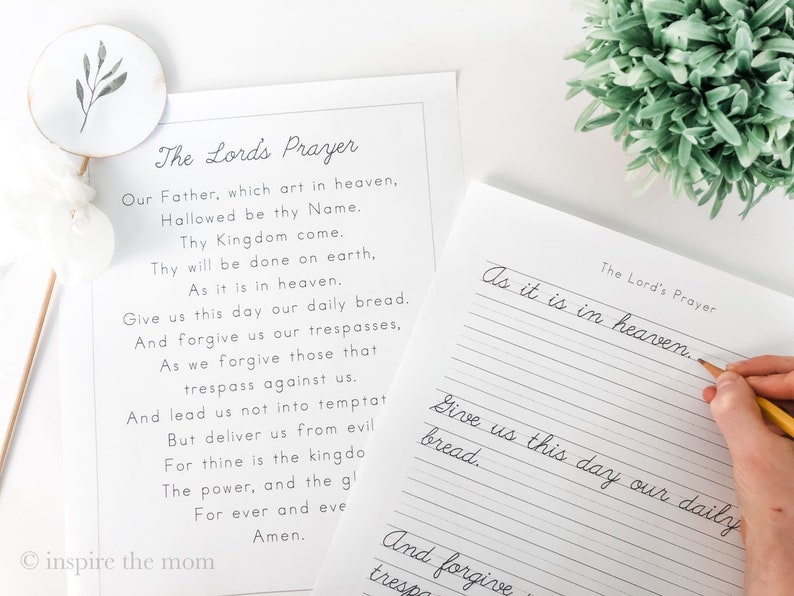 The Lord's Prayer
Our Father, which art in heaven,
Hallowed be thy Name.
Thy Kingdom come.
Thy will be done on earth,
As it is in heaven.
Give us this day our daily bread.
And forgive us our trespasses,
As we forgive those that
trespass against us.
And lead us not into temptat
But deliver us from evil
For thine is the kingdo
The power, and the gl
For ever and eve
Amen.
The Lord's Prayer
As it is in heaven.
Give us this day our daily
bread.
And forgive
trespas
© inspire the mom